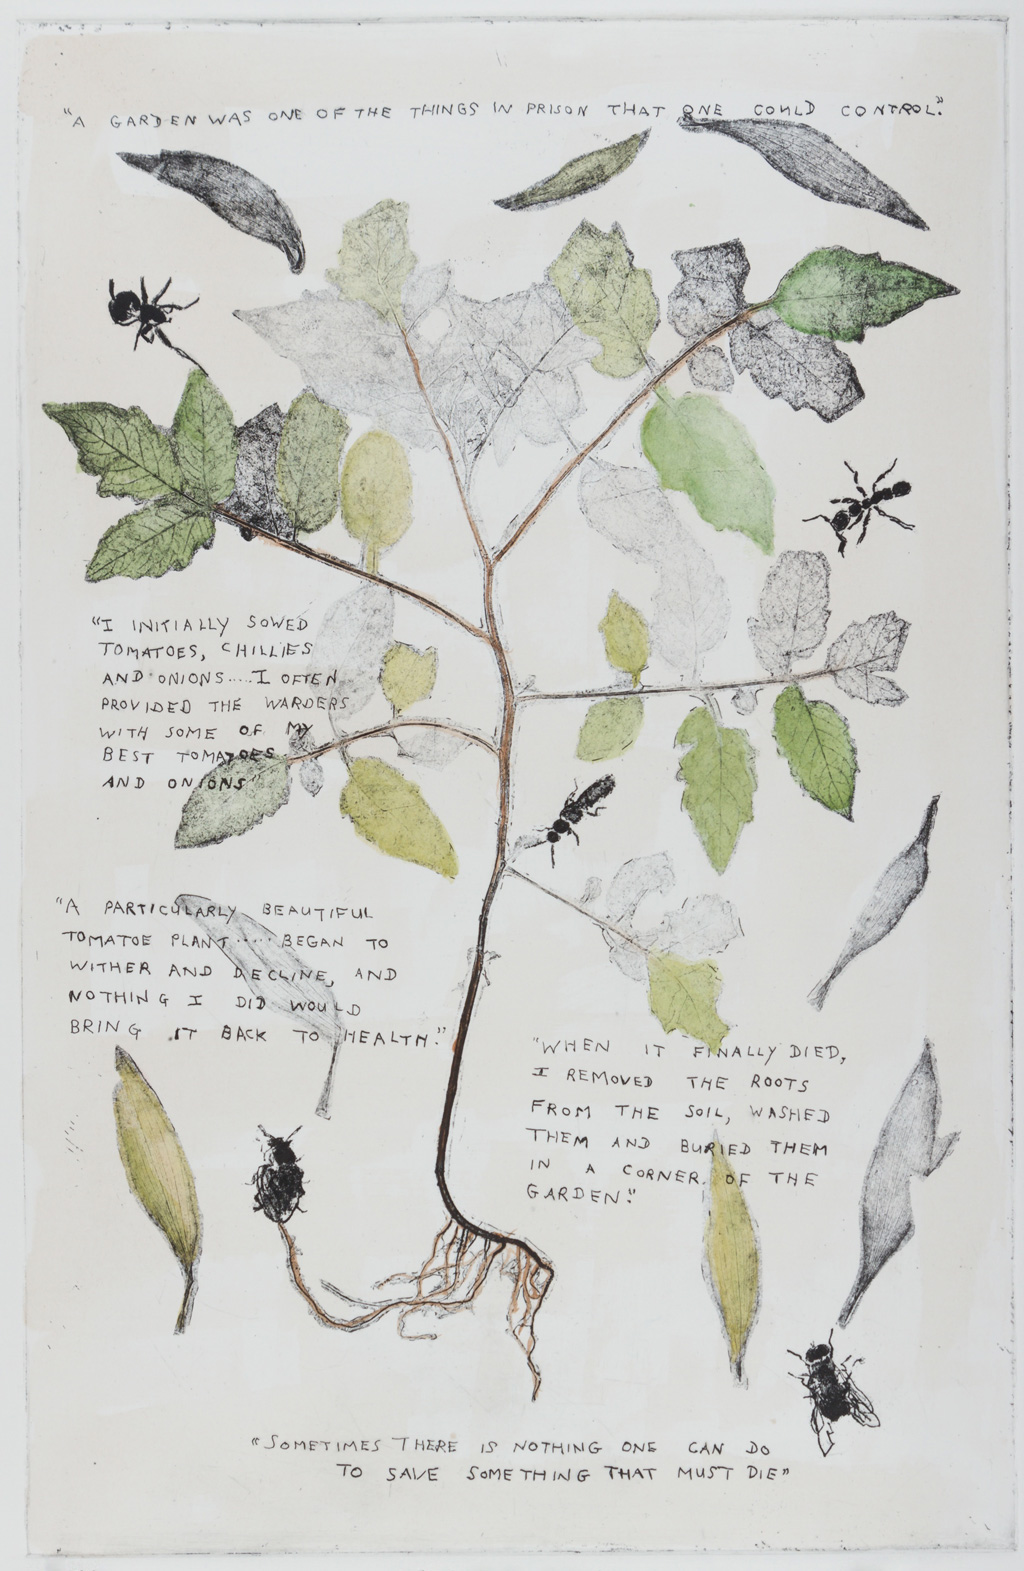 "A GARDEN WAS ONE OF THE THINGS IN PRISON THAT ONE COULD CONTROL."
"I INITIALLY SOWED
TOMATOES, CHILLIES
AND ONIONS.....I OFTEN
PROVIDED THE WARDERS
WITH SOME OF MY
BEST TOMATOES
AND ONIONS"
"A PARTICULARLY BEAUTIFUL
TOMATOE PLANT..... BEGAN TO
WITHER AND DECLINE, AND
NOTHING I DID WOULD
BRING IT BACK TO HEALTH."
"WHEN IT FINALLY DIED,
I REMOVED THE ROOTS
FROM THE SOIL, WASHED
THEM AND BURIED THEM
IN A CORNER OF THE
GARDEN."
"SOMETIMES THERE IS NOTHING ONE CAN DO
TO SAVE SOMETHING THAT MUST DIE"